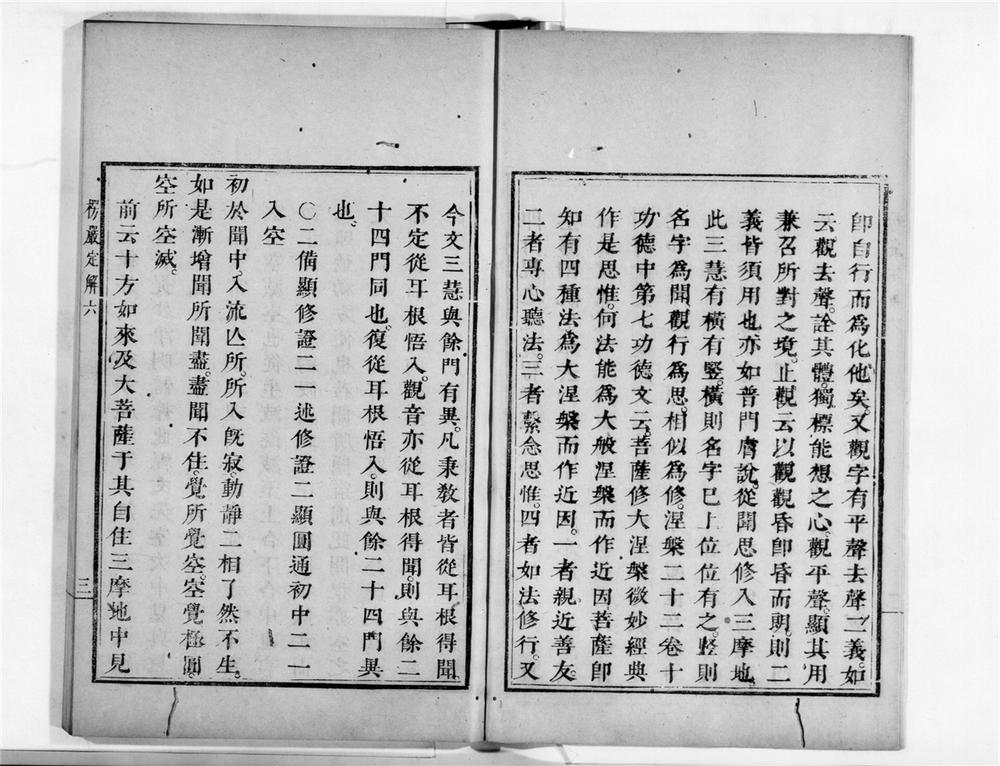 即自行而為化他矣。又觀字有平聲去聲二義。如
云觀去聲。詮其體。獨標能想之心。觀平聲。顯其用
兼召所對之境。止觀云以觀觀昏即昏而朗。則二
義皆須用也亦如普門膚說。從聞思修入三摩地。
此三慧有橫有竪。橫則名字已上位位有之。竪則
名字為聞觀行為思。相似為修。涅槃二十三卷十
功德中第七功德文云。菩薩修大涅槃微妙經典
作是思惟。何法能為大般涅槃而作近因菩薩即
知有四種法為大涅槃而作近因。一者親近善友。
二者專心聽法。三者繫念思惟。四者如法修行。又
今文三慧與餘門有異。凡秉教者皆從耳根得聞
不定從耳根悟入。觀音亦從耳根得聞。則與餘二
十四門同也。復從耳根悟入。則與餘二十四門異
也。
〇二備顯修證二一述修證二顯圓通初中二一
入空
初於聞中。入流亾所。所入旣寂。動靜二相了然不生。
如是漸增聞所聞盡。盡聞不住。覺所覺空。空覺極圓
空所空滅。
前云十方如來及大菩薩于其自住三摩地中見
楞嚴定解六
三